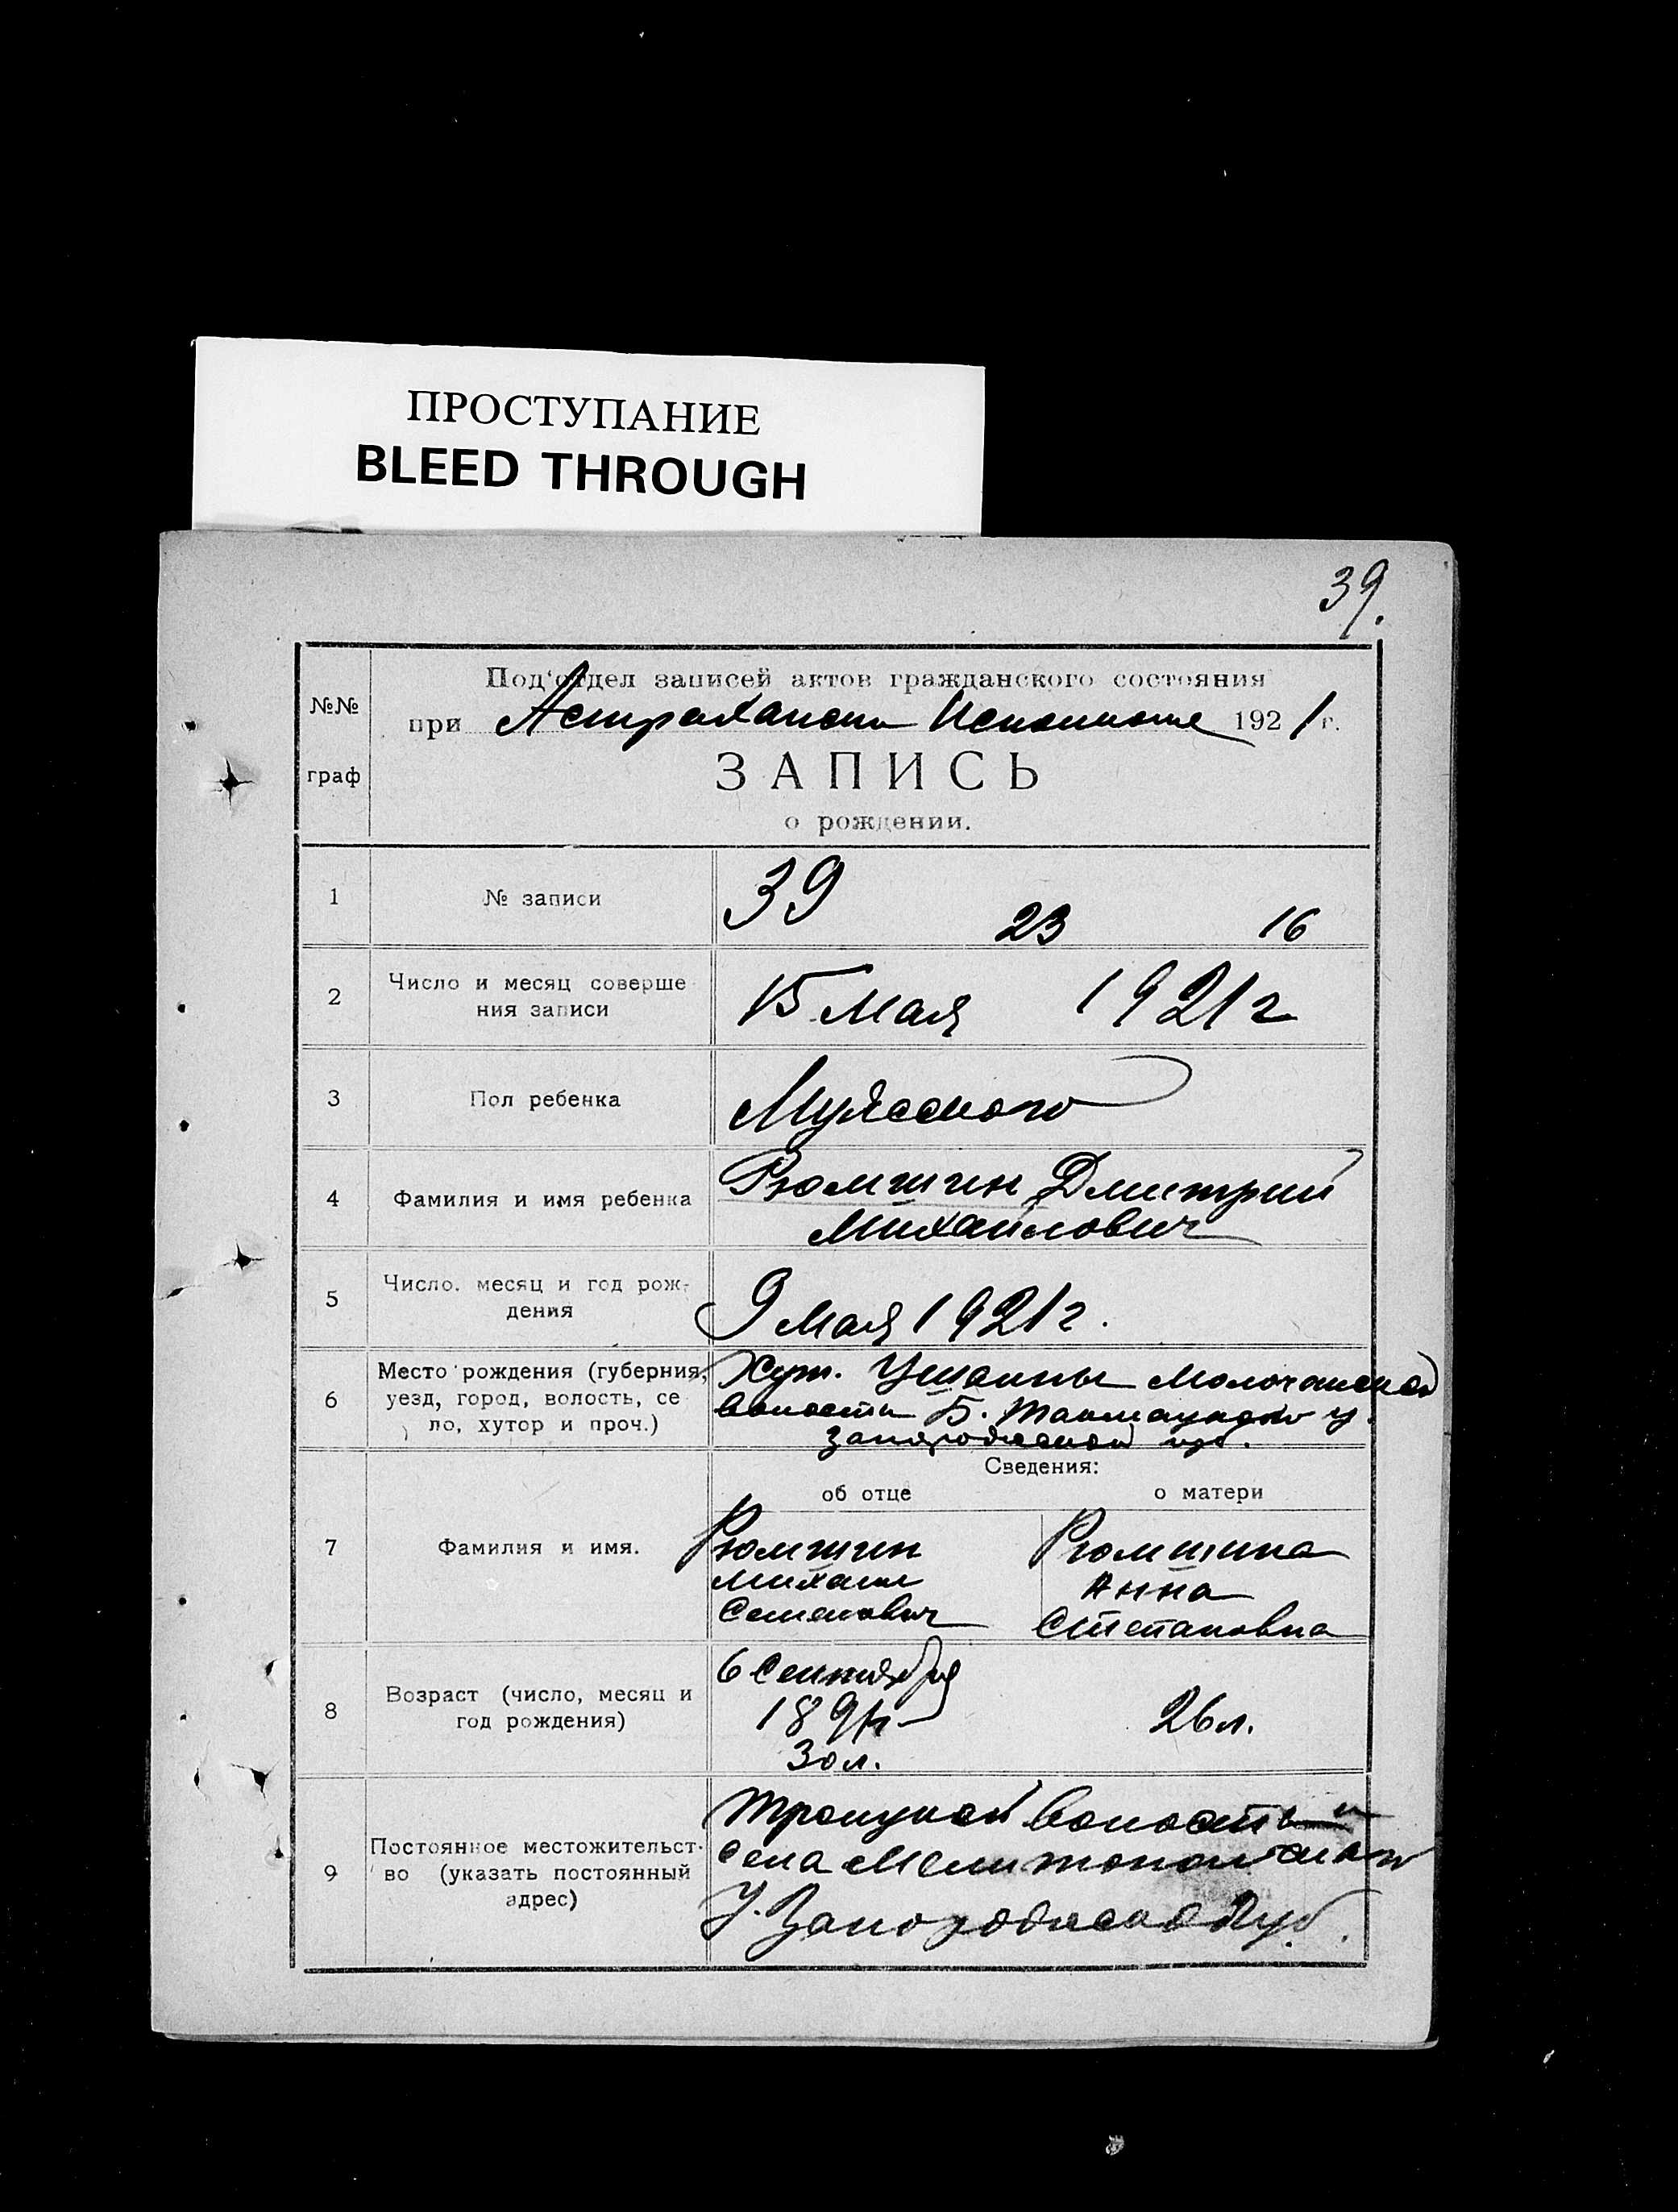 ПРОСТУПАНИЕ
BLEED THROUGH
39.
№№
граф
Под'отдел записей актов гражданского состояния
при Астраханском 1921 г.
ЗАПИСЬ
о рождении.
1
№ записи
39
23
16
2
Число и месяц соверше
ния записи
15 Мая 1921 г
3
Пол ребенка
Мужского
4
Фамилия и имя ребенка
Рюмшин Дмитрий
Михайлович
5
Число. месяц и год рож-
дения
9 Мая 1921 г.
6
Место рождения (губерния,
уезд, город, волость, се
ло, хутор и проч.)
Хут. Молочанской
волости Б. Токмацкого у.
Запорожской губ.
Сведения:
об отце
о матери
7
Фамилия и имя.
Рюмшин
Михаил
Семенович
Рюмшина
Анна
Степановна
8
Возраст (число, месяц и
год рождения)
6 Сентября
30 л.
26 л.
9
Постоянное местожительст-
во (указать постоянный
адрес)
Троицкой волости и
села Мелитопольского
У. Запорожской Губ.